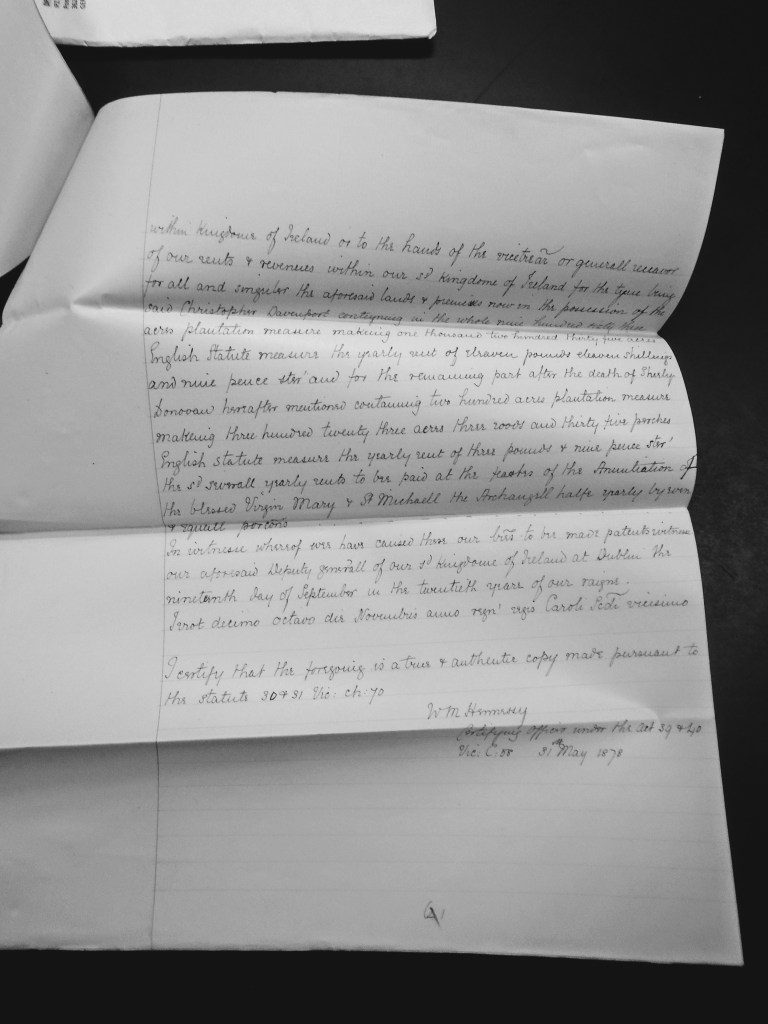 within Kingdome of Ireland or to the hands of the vicetrear̃ or generall receavor
of our rents & revenues within our sd Kingdome of Ireland for the tyme being
for all and singuler the aforesaid lands & premises now in the possession of the
said Christopher Davenport conteyning in the whole nine hundred sixty three
acres plantation measure makeing one thousand two hundred thirty five acres
English Statute measure the yearly rent of eleaven pounds eleaven shillings
and nine pence ster' and for the remaining part after the death of Sherly
Donovan hereafter mentioned containing two hundred acres plantation measure
makeing three hundred twenty three acres three roods and thirty five perches
English statute measure the yearly rent of three pounds & nine pence ster'
the sd severall yearly rents to bee paid at the feasts of the Anuntiation of
the blessed Virgin Mary & St Michaell the Archangell halfe yearly by even
& equall porcons
In witnesse whereof wee have caused these our lrẽs to be made patents witness
our aforesaid Deputy generall of our sd Kingdome of Ireland at Dublin the
nineteenth day of September in the twentieth yeare of our raigne.
Irrot decimo octavo die Novembris anno regn' regis Caroli Scd̃i vicisimo
I certify that the foregoing is a true & authentic copy made pursuant to
the statute 30 & 31 Vic: ch: 70
W M Hennessy
Certifying Officer under the Act 39 & 40
Vic: C: 58 31st May 1878